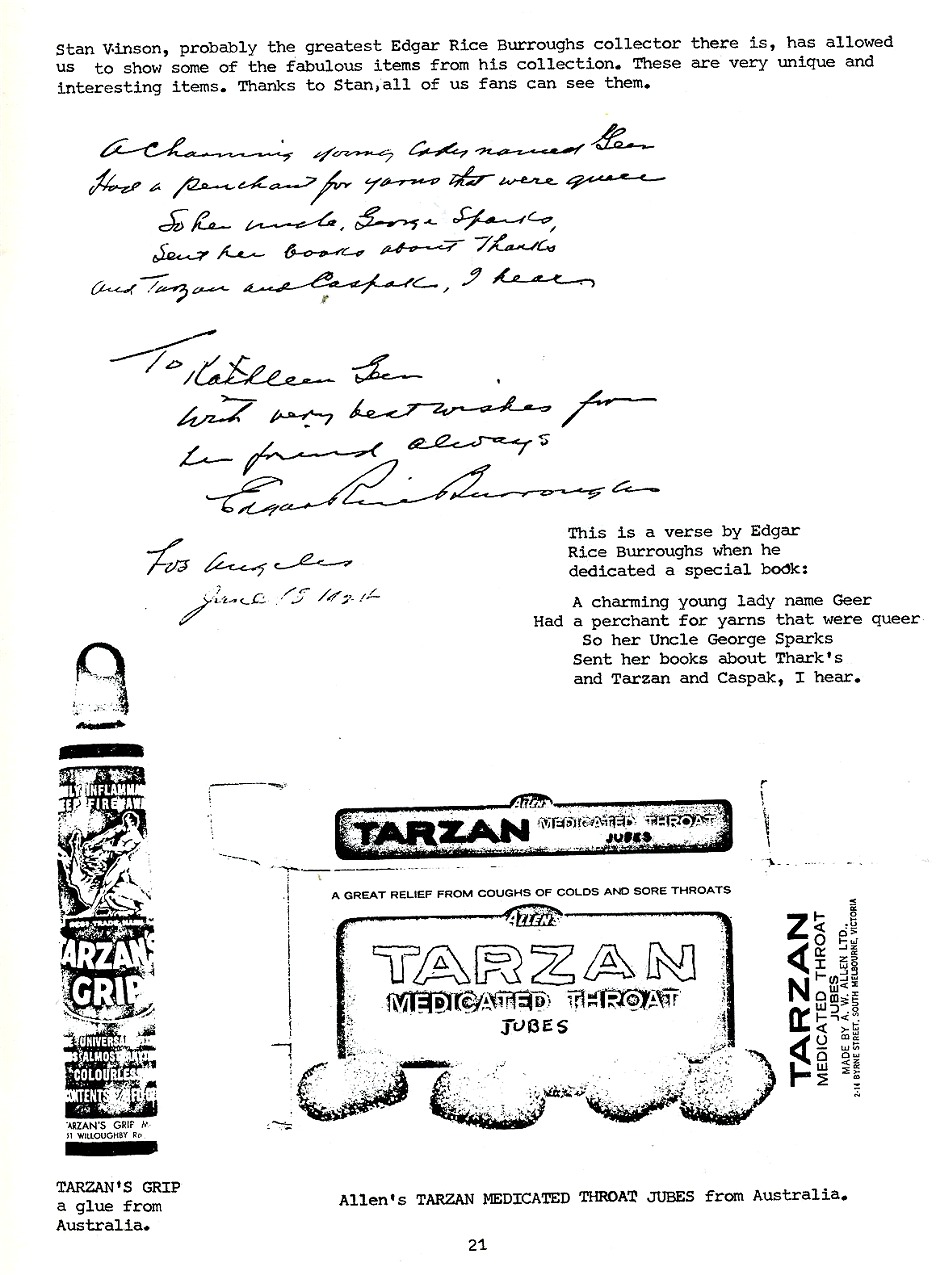 Stan Vinson, probably the greatest Edgar Rice Burroughs collector there is, has allowed
us to show some of the fabulous items from his collection. These are very unique and
interesting items. Thanks to Stan,all of us fans can see them.
A charming young lady named Geer
Had a penchant for yarns that were queer
So her uncle, George Sparks,
Sent her books about Tharks
and Tarzan and Caspak, I hear
To Kathleen Geer
With very best wishes from
her friend always
Edgar Rice Burroughs
Los Angeles
June 15 1924
This is a verse by Edgar
Rice Burroughs when he
dedicated a special book:
A charming young lady name Geer
Had a perchant for yarns that were queer
So her Uncle George Sparks
Sent her books about Thark's
and Tarzan and Caspak, I hear.
LY INFLAMMA
EP FIRE AWA
TARZAN'S
GRIP
E UNIVERSAL
IS ALMOST
COLOURLESS
CONTENTS
ARZAN'S GRIP M
51 WILLOUGHBY RD
TARZAN'S GRIP
a glue from
Australia.
Allen's
TARZAN MEDICATED THROAT
JUBES
A GREAT RELIEF FROM COUGHS OF COLDS AND SORE THROATS
ALLEN'S
TARZAN
MEDICATED THROAT
JUBES
TARZAN
MEDICATED THROAT
JUBES
MADE BY A. W. ALLEN LTD.,
2-14 BYRNE STREET, SOUTH MELBOURNE, VICTORIA
Allen's TARZAN MEDICATED THROAT JUBES from Australia.
21